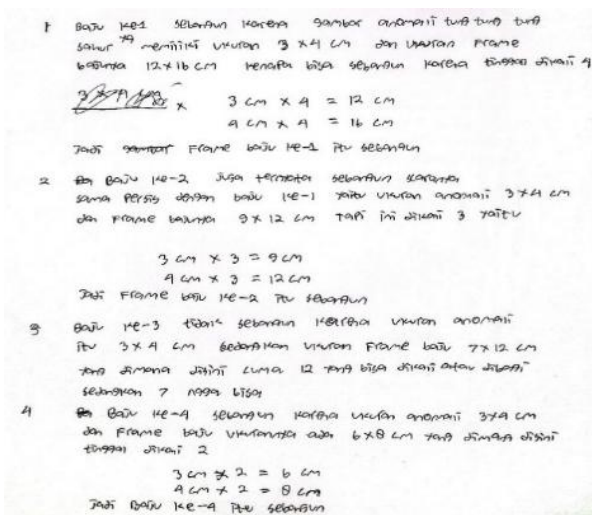 1 Baju ke-1 sebangun karena gambar anomali tung tung tung
sahur yg memiliki ukuran 3 x 4 cm dan ukuran frame
bajunya 12x16 cm kenapa bisa sebangun karena tinggal dikali 4
3 cm x 4 = 12 cm
4 cm x 4 = 16 cm
Jadi frame baju ke-1 itu sebangun
2 Baju ke-2 juga ternyata sebangun karena
sama persis dengan baju ke-1 yaitu ukuran anomali 3x4 cm
dan frame bajunya 9x12 cm tapi ini dikali 3 yaitu
3 cm x 3 = 9 cm
4 cm x 3 = 12 cm
Jadi frame baju ke-2 itu sebangun
3 Baju ke-3 tidak sebangun karena ukuran anomali
itu 3x4 cm sedangkan ukuran frame baju 7x12 cm
yang dimana disini cuma 12 yang bisa dikali atau dibagi
sedangkan 7 ngga bisa
4 Baju ke-4 sebangun karena ukuran anomali 3x4 cm
dan frame baju ukurannya ada 6x8 cm yang dimana disini
tinggal dikali 2
3 cm x 2 = 6 cm
4 cm x 2 = 8 cm
Jadi baju ke-4 itu sebangun